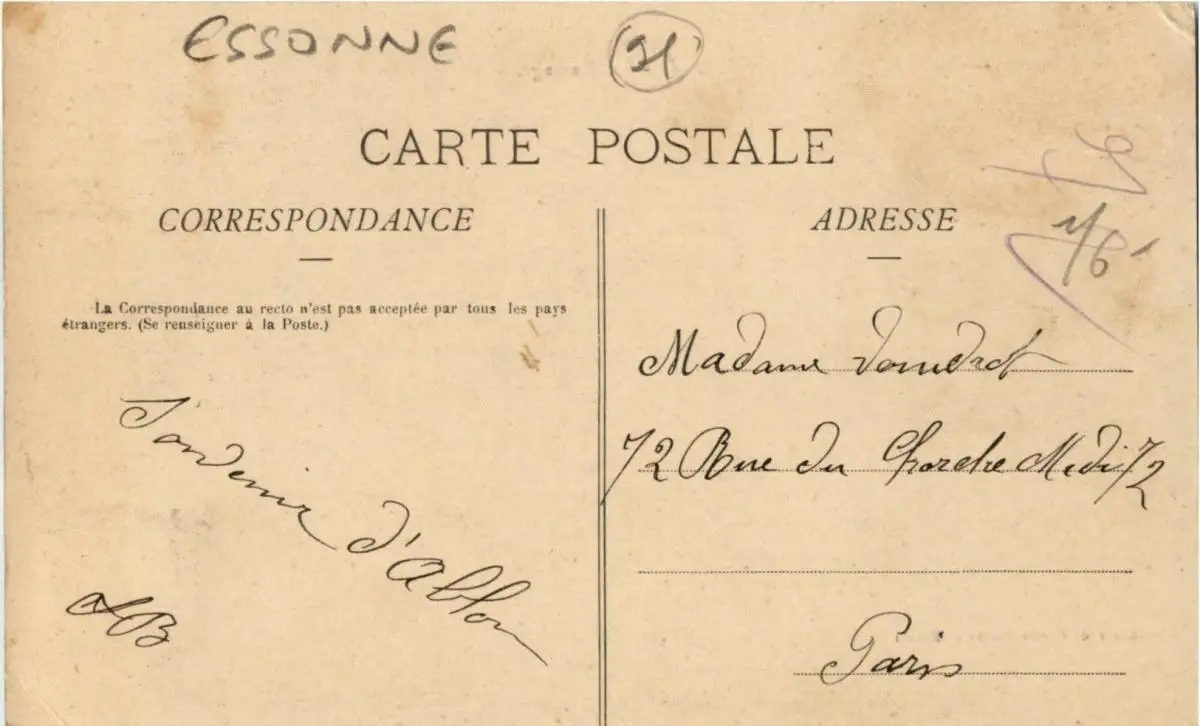 ESSONNE
91
CARTE POSTALE
CORRESPONDANCE
ADRESSE
La Correspondance au recto n'est pas acceptée par tous les pays
étrangers. (Se renseigner à la Poste.)
Souvenir d'Ablon
Madame
72 Rue du Cherche Midi 72
Paris